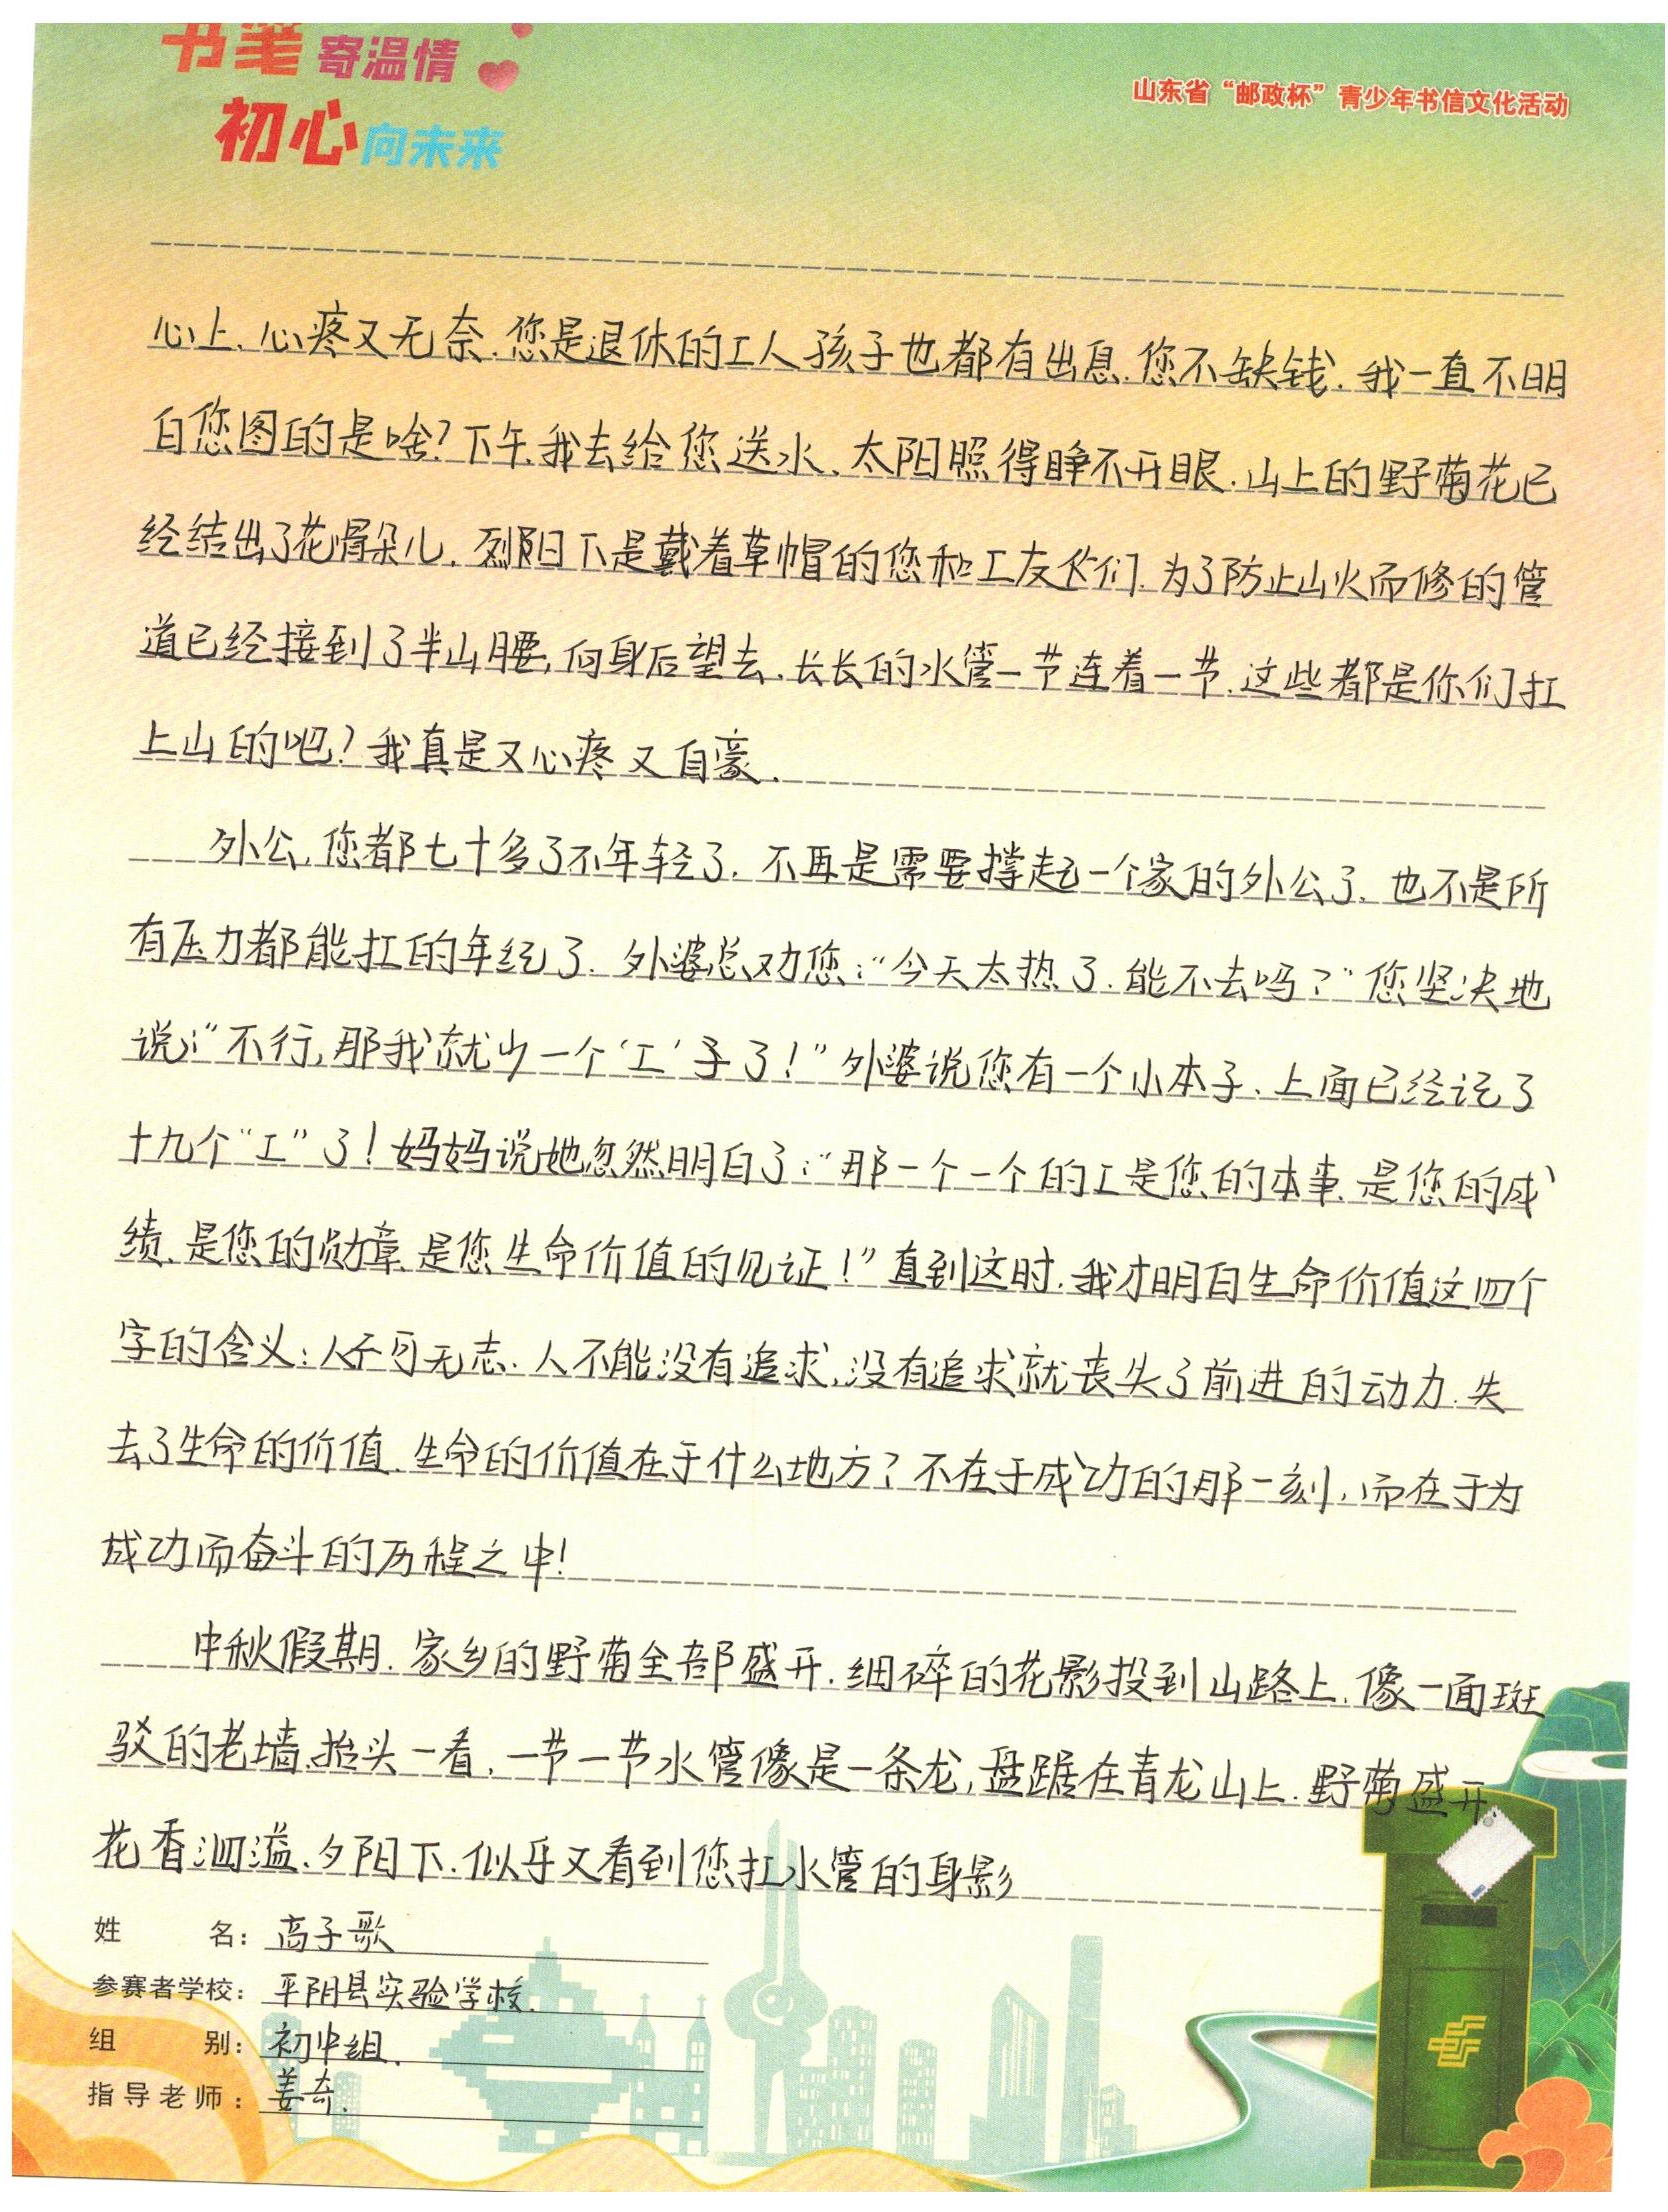 书笔寄温情
初心向未来
山东省“邮政杯”青少年书信文化活动
心上，心疼又无奈.您是退休的工人孩子也都有出息.您不缺钱.我一直不明
白您图的是啥?下午我去给您送水.太阳照得睁不开眼.山上的野菊花已
经结出了花骨朵儿.烈阳下是戴着草帽的您和工友们.为了防止山火而修的管
道已经接到了半山腰,向身后望去.长长的水管一节连着一节.这些都是你们扛
上山的吧?我真是又心疼又自豪.
外公.您都七十多了不年轻了.不再是需要撑起一个家的外公了.也不是所
有压力都能扛的年纪了.外婆总劝您:“今天太热了.能不去吗?”您坚决地
说:“不行,那我就少一个‘工’子了!”外婆说您有一个小本子.上面已经记了
十九个“工”了!妈妈说她忽然明白了:“那一个一个的工是您的本事.是您的成
绩.是您的勋章.是您生命价值的见证!”直到这时.我才明白生命价值这四个
字的含义:人不可无志.人不能没有追求,没有追求就丧失了前进的动力.失
去了生命的价值.生命的价值在于什么地方?不在于成功的那一刻,而在于为
成功而奋斗的历程之中!
中秋假期.家乡的野菊全部盛开.细碎的花影投到山路上.像一面斑
驳的老墙.抬头一看,一节一节水管像是一条龙,盘踞在青龙山上.野菊盛开
花香泗溢.夕阳下.似乎又看到您扛水管的身影
姓名:高子歌
参赛者学校:平阴县实验学校.
组别:初中组.
指导老师:姜奇.